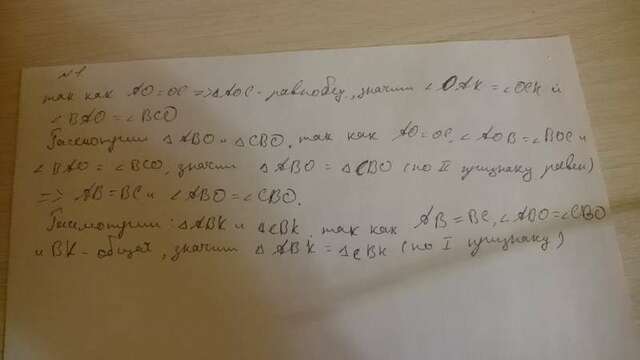 №1
так как AO=OC => △AOC - равнобед, значит ∠OAK = ∠OCK и
∠BAO = ∠BCO
Рассмотрим △ABO и △CBO, так как AO=OC, ∠AOB=∠BOC и
∠BAO = ∠BCO, значит △ABO = △CBO (по II признаку равен)
=> AB=BC и ∠ABO=∠CBO.
Рассмотрим: △ABK и △CBK, так как AB=BC, ∠ABO=∠CBO
и BK - общая, значит △ABK = △CBK (по I признаку)